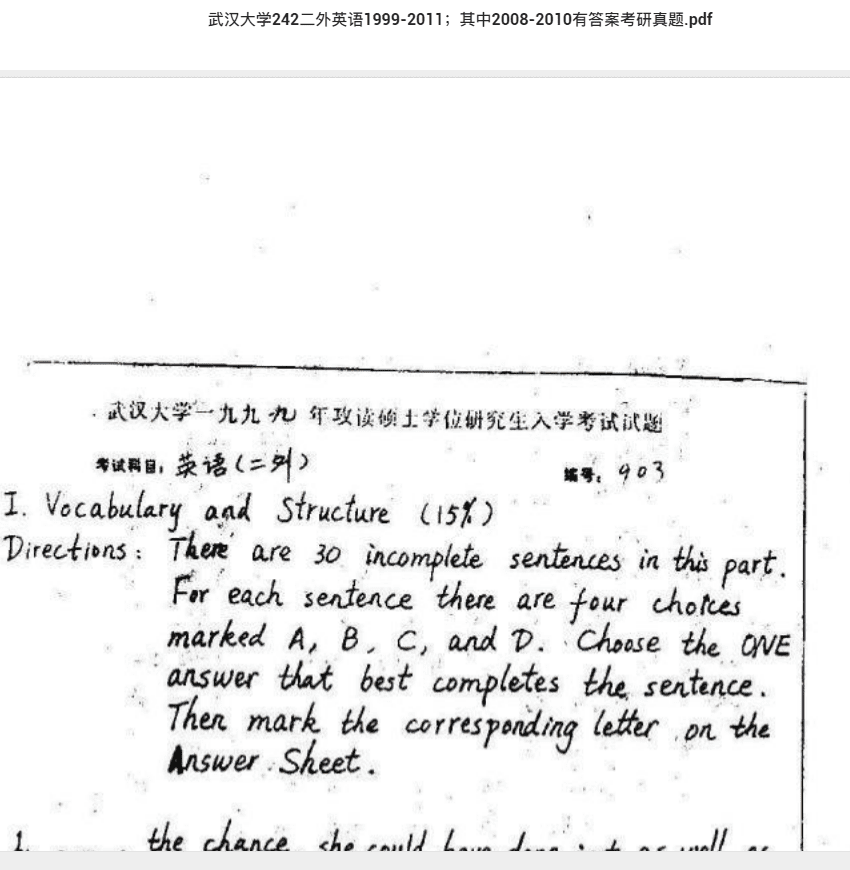 武汉大学242二外英语1999-2011；其中2008-2010有答案考研真题.pdf
武汉大学一九九九年攻读硕士学位研究生入学考试试题
考试科目：英语(二外) 编号：903
I. Vocabulary and Structure (15%)
Directions: There are 30 incomplete sentences in this part.
For each sentence there are four choices
marked A, B, C, and D. Choose the ONE
answer that best completes the sentence.
Then mark the corresponding letter on the
Answer Sheet.
1. ____ the chance, she could have done it as well as